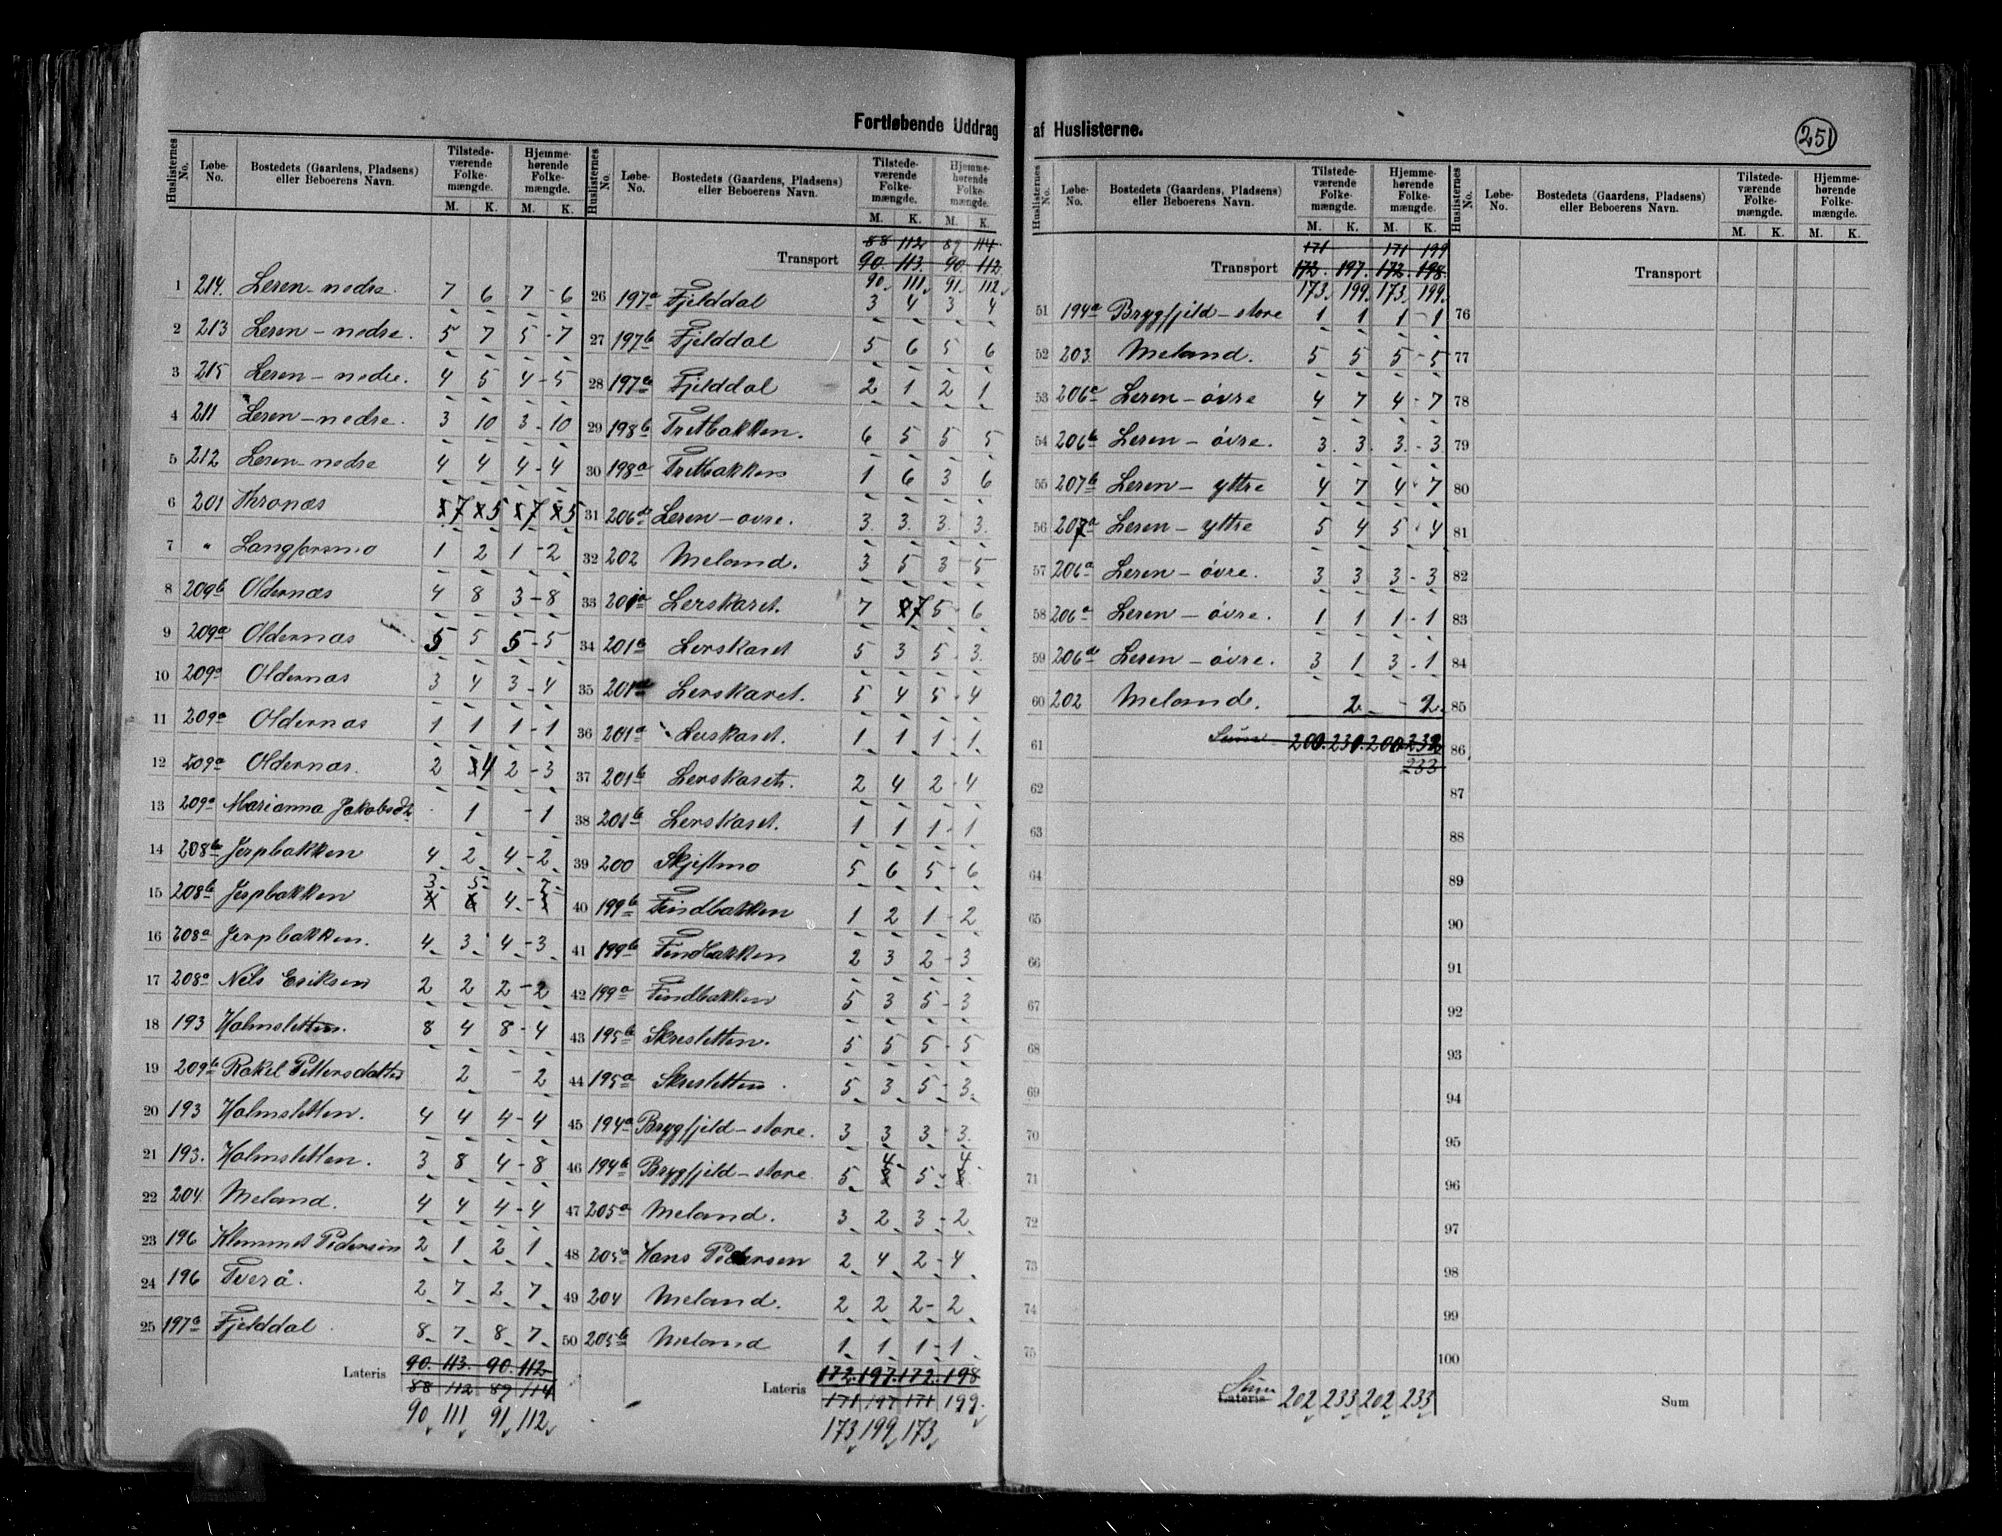 Fortløbende Uddrag af Huslisterne.
251
Huslisternes No. Løbe-No. Bostedets (Gaardens, Pladsens) eller Beboerens Navn. Tilstedeværende Folkemængde. M. K. Hjemmehørende Folkemængde. M. K.
1 214. Leren-nedre. 7 6 7-6
2 213 Leren-nedre. 5 7 5-7
3 215 Leren-nedre. 4 5 4-5
4 211 Leren-nedre. 3 10 3-10
5 212 Leren-nedre 4 4 4-4
6 201 Thronæs 7 5 7 5
7 " Langforsmo 1 2 1-2
8 209b Oldernæs 4 8 3-8
9 209a Oldernæs 5 5 5-5
10 209a Oldernæs 3 4 3-4
11 209a Oldernæs 1 1 1-1
12 209a Oldernæs. 2 4 2-3
13 209a Marianna Jakobsdt 1 -1
14 208b Jerpbakken 4 2 4-2
15 208b Jerpbakken 3 5 4-7
16 208a Jerpbakken. 4 3 4-3
17 208a Nels Eriksen 2 2 2-2
18 193 Holmsletten. 8 4 8-4
19 209b Rakel Pettersdatter 2 -2
20 193 Holmsletten. 4 4 4-4
21 193. Holmsletten. 3 8 4-8
22 204 Meland. 4 4 4-4
23 196 Klemmet Pedersen 2 1 2 1
24 196 Tverå. 2 7 2 7
25 197a Fjelddal 8 7 8 7
Lateris 90. 113. 90. 112
88 112 89 114
90 111 91 112
Huslisternes No. Løbe-No. Bostedets (Gaardens, Pladsens) eller Beboerens Navn. Tilstedeværende Folkemængde. M. K. Hjemmehørende Folkemængde. M. K.
88 112 89 114
Transport 90. 113. 90. 112
90 111 91 112
26 197a Fjelddal 3 4 3 4
27 197b Fjelddal 5 6 5 6
28 197a Fjelddal 2 1 2 1
29 198b Tretbakken. 6 5 5 5
30 198a Tretbakken 1 6 3 6
31 206 Leren-øvre. 3 3 3 3
32 202 Meland. 3 5 3-5
33 201a Lerskaret. 7 7 5-6
34 201b Lerskaret 5 3 5-3
35 201 Lerskaret. 5 4 5-4
36 201a Lerskaret. 1 1 1-1
37 201b Lerskaret. 2 4 2-4
38 201b Lerskaret. 1 1 1-1
39 200 Skjeftmo 5 6 5-6
40 199b Findbakken 1 2 1-2
41 199b Findbakken 2 3 2-3
42 199a Findbakken 5 3 5-3
43 195b Skresletten. 5 5 5-5
44 195a Skresletten. 5 3 5-3
45 194a Brygfjeld-store. 3 3 3-3
46 194b Brygfjeld-store 5 4 5-4
47 205a Meland. 3 2 3-2
48 205a Hans Pedersen 2 4 2-4
49 204 Meland. 2 2 2-2
50 205b Meland 1 1 1-1
Lateris 172. 197. 172. 198
171 197 171 199
173 199 173
Huslisternes No. Løbe-No. Bostedets (Gaardens, Pladsens) eller Beboerens Navn. Tilstedeværende Folkemængde. M. K. Hjemmehørende Folkemængde. M. K.
171 171 199
Transport 172. 197. 172. 198.
173. 199. 173. 199.
51 194a Brygfjeld-store 1 1 1-1
52 203 Meland. 5 5 5-5
53 206a Leren-øvre 4 7 4-7
54 206b Leren-øvre. 3 3 3-3
55 207b Leren-yttre 4 7 4-7
56 207a Leren-yttre 5 4 5-4
57 206a Leren-øvre. 3 3 3-3
58 206a Leren-øvre. 1 1 1-1
59 206 Leren-øvre. 3 1 3-1
60 202 Meland. 2 -2
61 Sum 200 231 200 232
233
62
63
64
65
66
67
68
69
70
71
72
73
74
75
Sum Lateris 202 233 202 233
Huslisternes No. Løbe-No. Bostedets (Gaardens, Pladsens) eller Beboerens Navn. Tilstedeværende Folkemængde. M. K. Hjemmehørende Folkemængde. M. K.
Transport
76
77
78
79
80
81
82
83
84
85
86
87
88
89
90
91
92
93
94
95
96
97
98
99
100
Sum